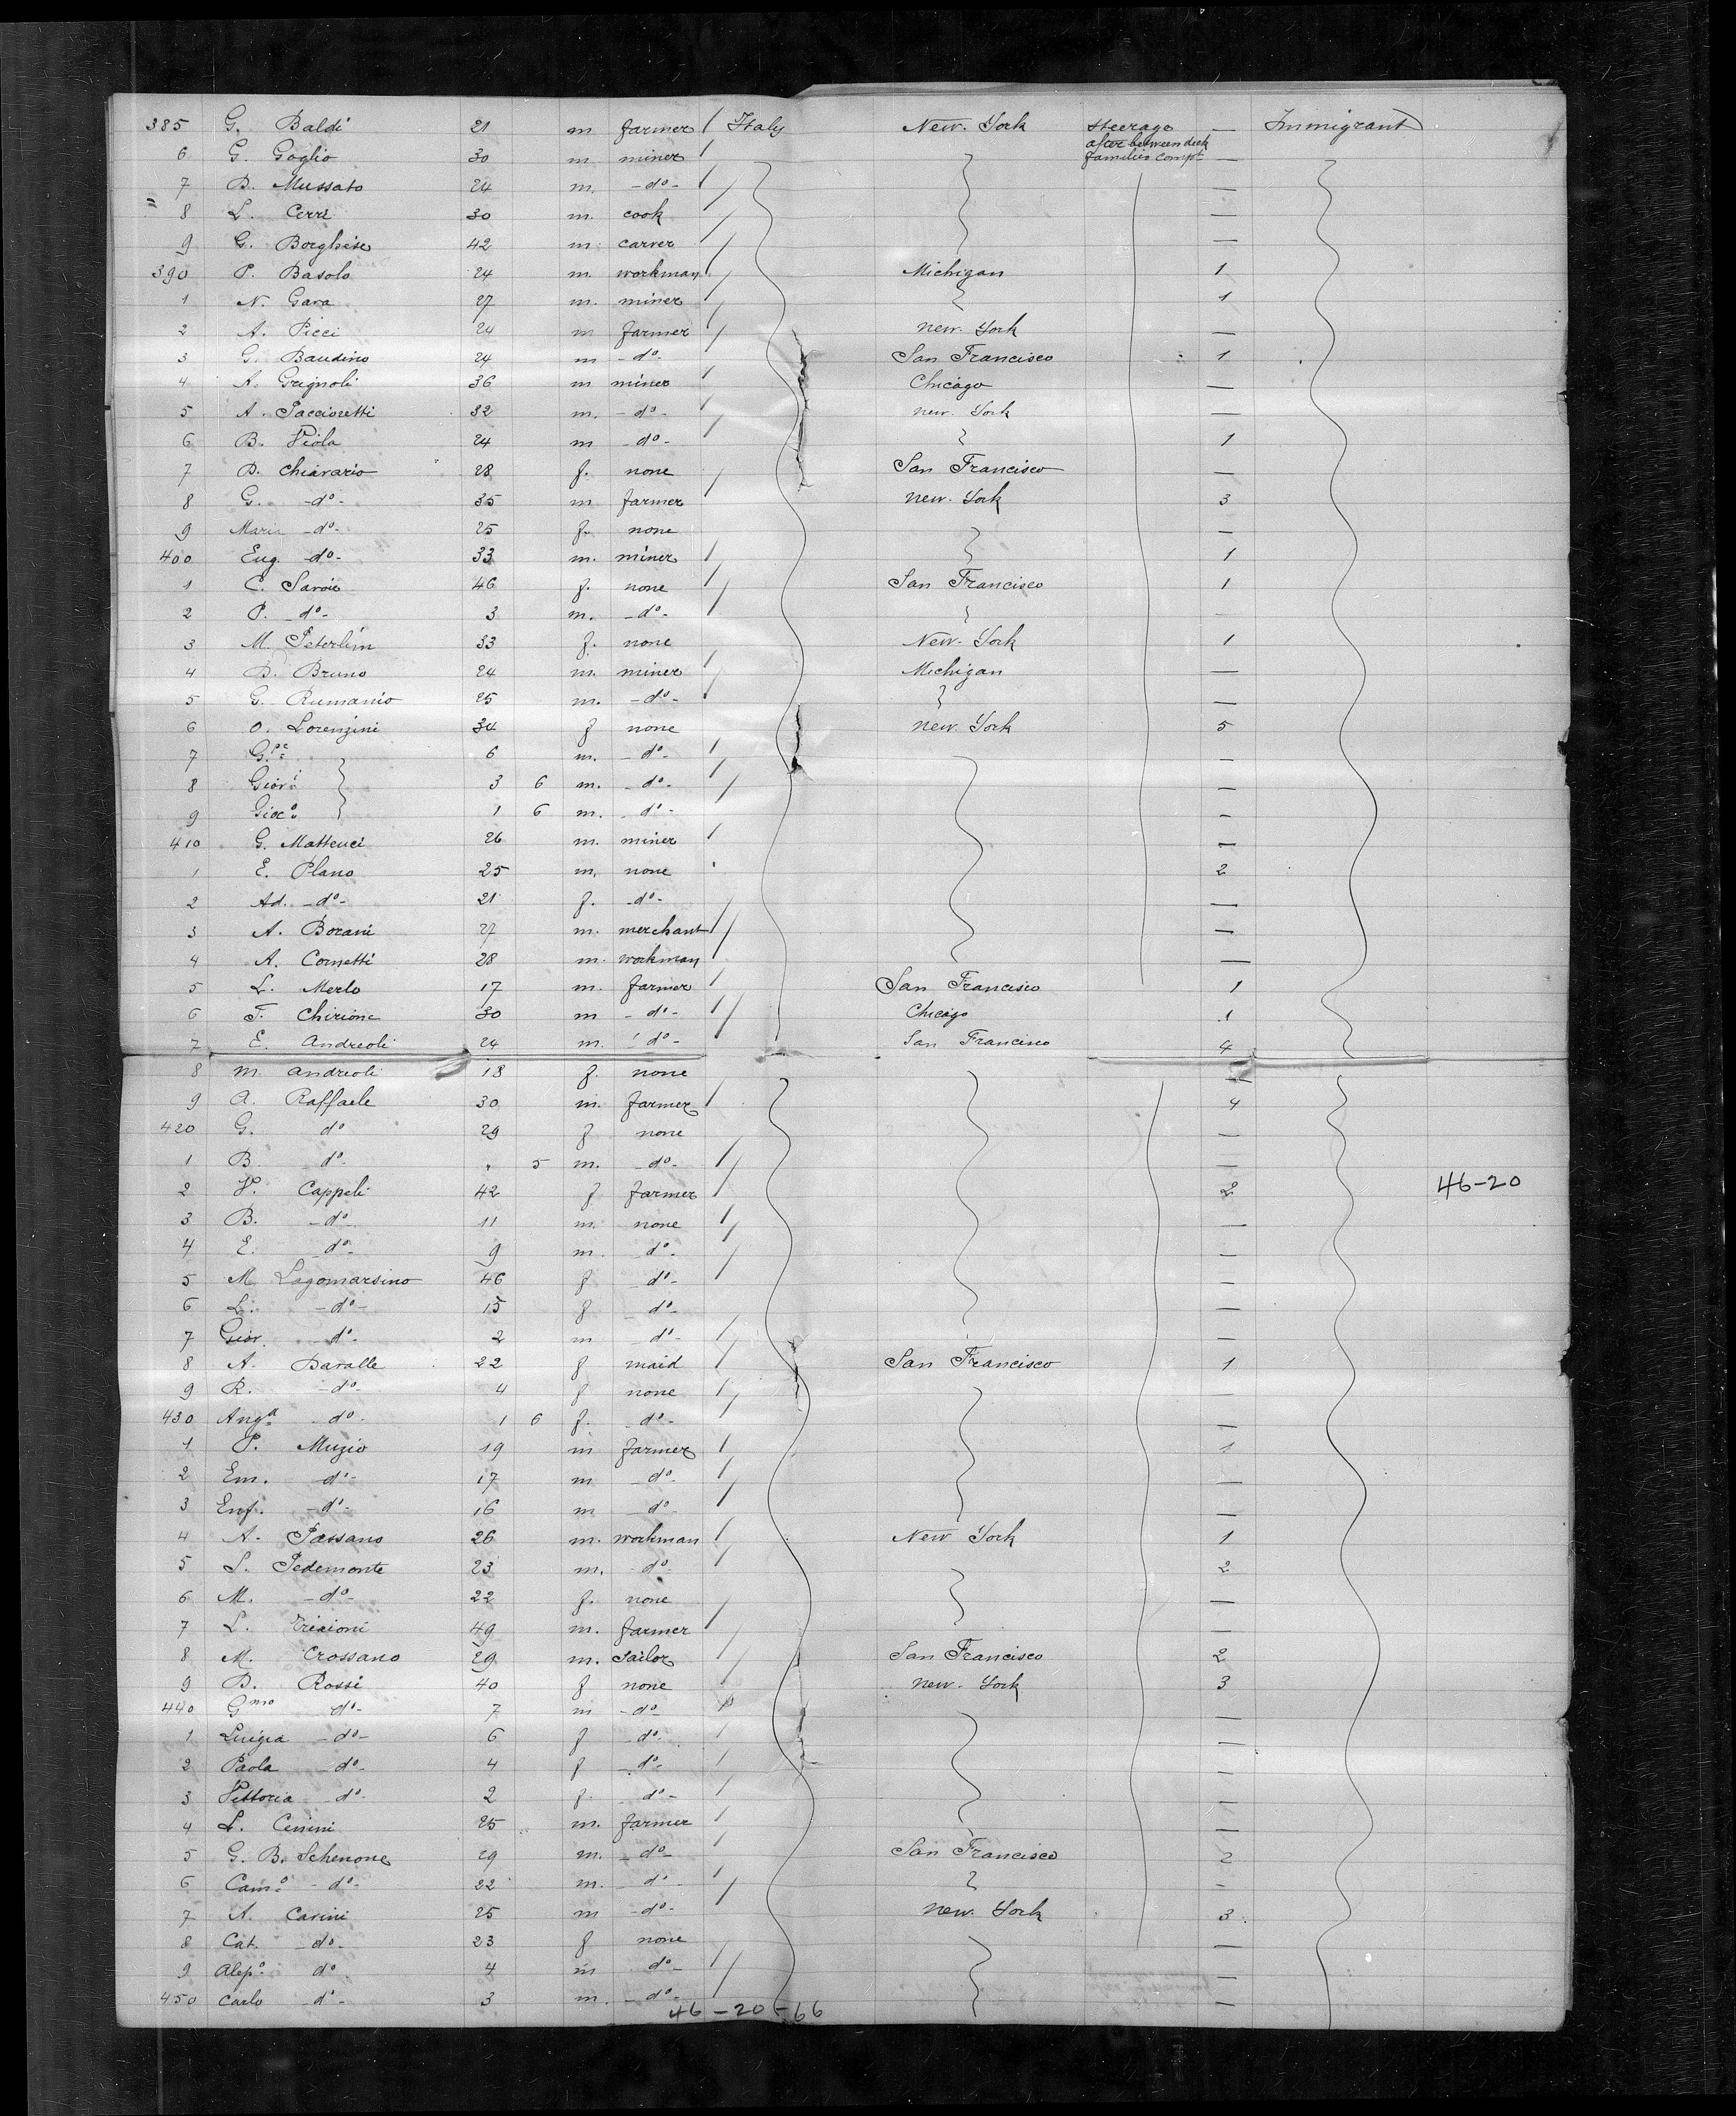 385 G. Baldi 21 m farmer Italy New. York steerage — Immigrant
after between deck
6 G. Goglio 30 m. miner families compt —
7 B. Mussato 24 m. -do- —
8 L. Cerri 30 m. cook —
9 G. Borghise 42 m. carver —
390 P. Basolo 24 m. workman Michigan 1
1 N. Gara 27 m. miner 1
2 A. Picci 24 m farmer New. York —
3 G. Baudino 24 m -do- San Francisco 1
4 A. Grignoli 36 m miner Chicago —
5 A. Paccioretti 32 m. -do- New. York —
6 B. Viola 24 m -do- 1
7 B. Chiavario 28 f. none San Francisco —
8 G. -do- 35 m farmer New. York 3
9 Maria -do- 25 f. none —
400 Eug. do- 33 m. miner 1
1 C. Savoie 46 f. none San Francisco 1
2 P. -do- 3 m. -do-
3 M. Peterlin 33 f. none New. York 1
4 D. Bruno 24 m. miner Michigan —
5 G. Rumanio 25 m. -do- —
6 O. Lorenzini 34 f none New. York 5
7 G.pe 6 m. -do- —
8 Giovi 3 6 m. -do- —
9 Gioco 1 6 m. -do- -
410 G. Matteuci 26 m. miner —
1 E. Plano 25 m. none 2
2 Ad. -do- 21 f. -do- —
3 A. Borani 27 m. merchant —
4 A. Cornetti 28 m. workman —
5 L. Merlo 17 m. farmer San Francisco 1
6 F. Chirione 30 m -do- Chicago 1
7 E. Andreoli 24 m. do- San Francisco 4
8 M. Andreoli 18 f. none —
9 A. Raffaele 30 m. farmer 4
420 G. do 29 f none —
1 B do- 5 m. -do- —
2 V. Cappeli 42 f farmer 2 46-20
3 B. -do- 11 m. none —
4 E. do- 9 m. do- —
5 M. Lagomarsino 46 f do- —
6 L. -do- 15 f do- —
7 Giov. do- 2 m do- —
8 A. Daralle 22 f maid San Francisco 1
9 R. -do- 4 f none —
430 Anga do- 1 6 f. -do- —
1 P. Muzio 19 m farmer 1
2 Em. do- 17 m do- —
3 Enf. -do- 16 m do —
4 A. Passano 26 m. workman New York 1
5 S. Pedemonte 23 m. do- 2
6 M. -do- 22 f. none —
7 L. 49 m. farmer —
8 M. Crossano 29 m. sailor San Francisco 2
9 B. Rossi 40 f none New. York 3
440 Gmo do- 7 m -do- —
1 Luigia -do- 6 f -do- —
2 Paola do- 4 f -do- —
3 Vittoria do- 2 f. -do- —
4 L. Cenini 25 m. farmer —
5 G. B. Schenone 29 m. -do- San Francisco 2
6 Camo -do- 22 m. -do- -
7 A. Carini 25 m -do- New. York 3
8 Cat. -do- 23 f none —
9 do 4 m do- —
450 Carlo -do- 3 m. -do- —
46-20-66